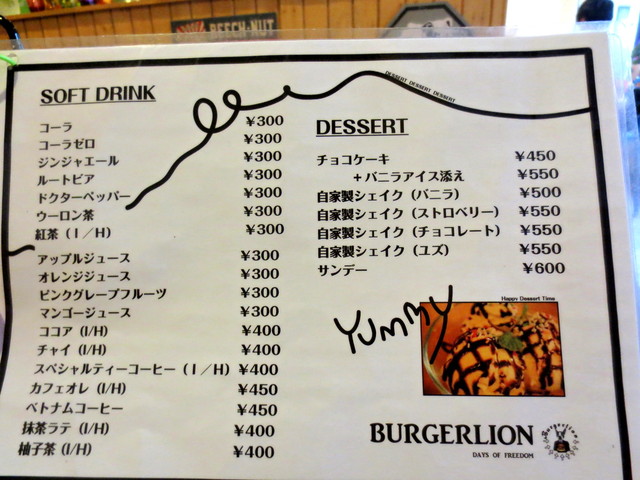 BEECH-NUT
SOFT DRINK
コーラ ¥300
コーラゼロ ¥300
ジンジャエール ¥300
ルートビア ¥300
ドクターペッパー ¥300
ウーロン茶 ¥300
紅茶（I／H） ¥300
アップルジュース ¥300
オレンジジュース ¥300
ピンクグレープフルーツ ¥300
マンゴージュース ¥300
ココア (I/H) ¥400
チャイ (I/H) ¥400
スペシャルティーコーヒー（I／H） ¥400
カフェオレ (I/H) ¥450
ベトナムコーヒー ¥450
抹茶ラテ (I/H) ¥400
柚子茶 (I/H) ¥400
DESSERT DESSERT DESSERT DESSERT
DESSERT
チョコケーキ ¥450
＋バニラアイス添え ¥550
自家製シェイク（バニラ） ¥500
自家製シェイク（ストロベリー） ¥550
自家製シェイク（チョコレート） ¥550
自家製シェイク（ユズ） ¥550
サンデー ¥600
Happy Dessert Time
YUMMY
BURGERLION
DAYS OF FREEDOM
Burgerlion